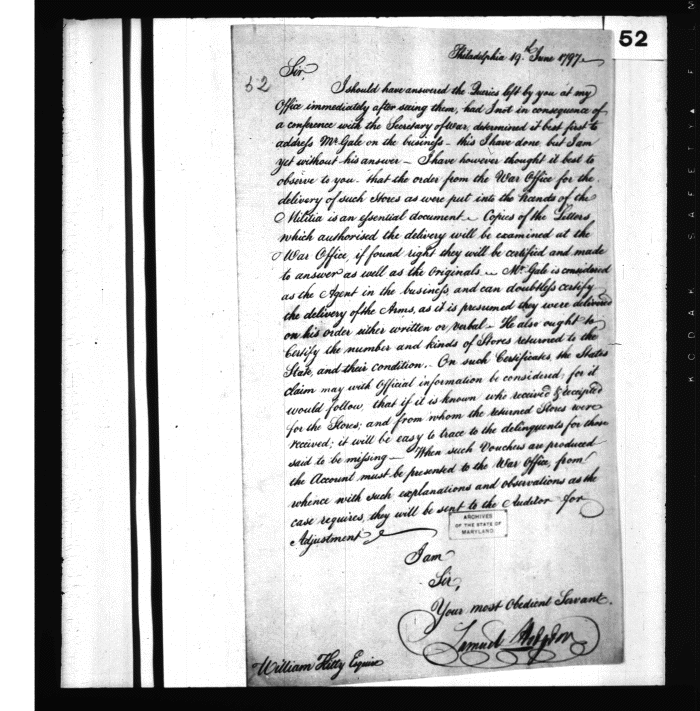 52
Philadelphia 19th June 1797
52
Sir,
I should have answered the Queries left by you at my
Office immediately after seeing them, had I not in consequence of
a conference with the Secretary of War, determined it best first to
address Mr Gale on the business – this I have done, but I am
yet without his answer – I have however thought it best to
observe to you, that the order from the War Office for the
delivery of such Stores as were put into the hands of the
Militia is an essential document – Copies of the Letters,
which authorised the delivery will be examined at the
War Office, if found right they will be certified and made
to answer as well as the Originals – Mr Gale is considered
as the Agent in the business, and can doubtless certify
the delivery of the Arms, as it is presumed they were delivered
on his order either written or verbal – He also ought to
Certify the number and kinds of Stores returned to the
State, and their condition. – On such Certificates, the States
claim may with Official information be considered; for it
would follow, that if it is known who received & receipted
for the Stores; and from whom the returned Stores were
received; it will be easy to trace to the delinquents for those
said to be missing – When such Vouchers are produced
the Account must be presented to the War Office, from
whence with such explanations and observations as the
case requires, they will be sent to the Auditor for
Adjustment
ARCHIVES
OF THE STATE OF
MARYLAND
I am
Sir,
Your most Obedient Servant.
Samuel Hodgdon
William Kilty Esquire
KODAK SAFETY